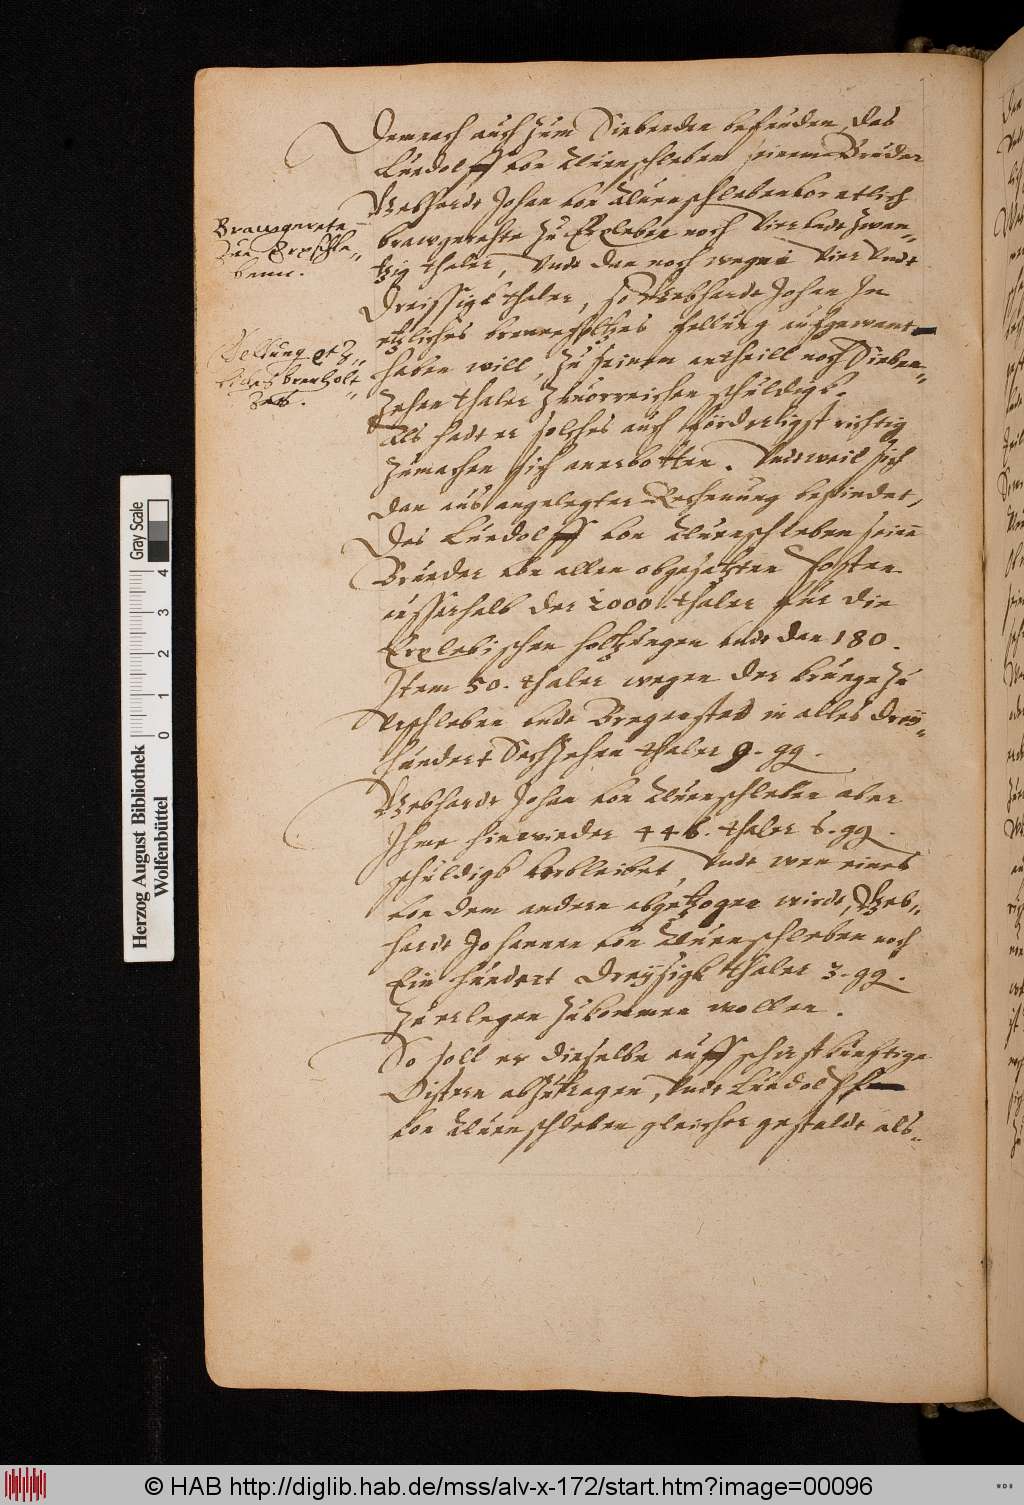 Demnach auch Zum Siebenden befunden, das
Luedolff von Aluenschleben seinem Bruder
Gebhardt Johan von Aluenschleben vor etlich
brawgerehte zu Erxleben noch Vier vndt zwan„
tzig thaler, Vndt dan noch wegen Vier Vndt
Dreissigk thaler, so Gebhardt Johan In
etzliches brennholtzes fellung aufgewant
haben will, Zu seinem antheill noch Sieben„
Zehen thaler Zuuorreichen schuldigk.
Als hadt er solches auch förderligst richtig
Zumachen sich anerbotten. Vndt weil sich
dan aus angelegter Rechenung befindet,
Das Luedolff von Aluenschleben seinē
Bruder von allen obgesatzten Posten
ausserhalb der 2000. thaler für die
Erxlebischen holtzungen vndt den 180.
Item 50. thaler wegen der kruege zu
Vrschleben vndt Bregenstet in alles drey„
hundert Sechzehen thaler 9. gg.
Gebhardt Johan von Aluenschleben aber
Ihme hinwieder 446. thaler 6. gg.
schuldigk verbleibet, Vndt wen eines
von dem andern abgetzogen wirdt, Geb„
hardt Johannen von Aluenschleben noch
Ein hundert dreyssigk thaler 3. gg.
Zu erlegen Zukommen wollen.
So soll er dieselbe auff schirstkünftige
Ostern abzutragen, Vndt Luedolff
von Aluenschleben gleicher gestaldt als„
Brawgerete
Zue Erxsle„
benn.
Fellung etz„
liches brenholt„
zes.
Herzog August Bibliothek
Wolfenbüttel
0 1 2 3 4
Gray Scale
© HAB http://diglib.hab.de/mss/alv-x-172/start.htm?image=00096